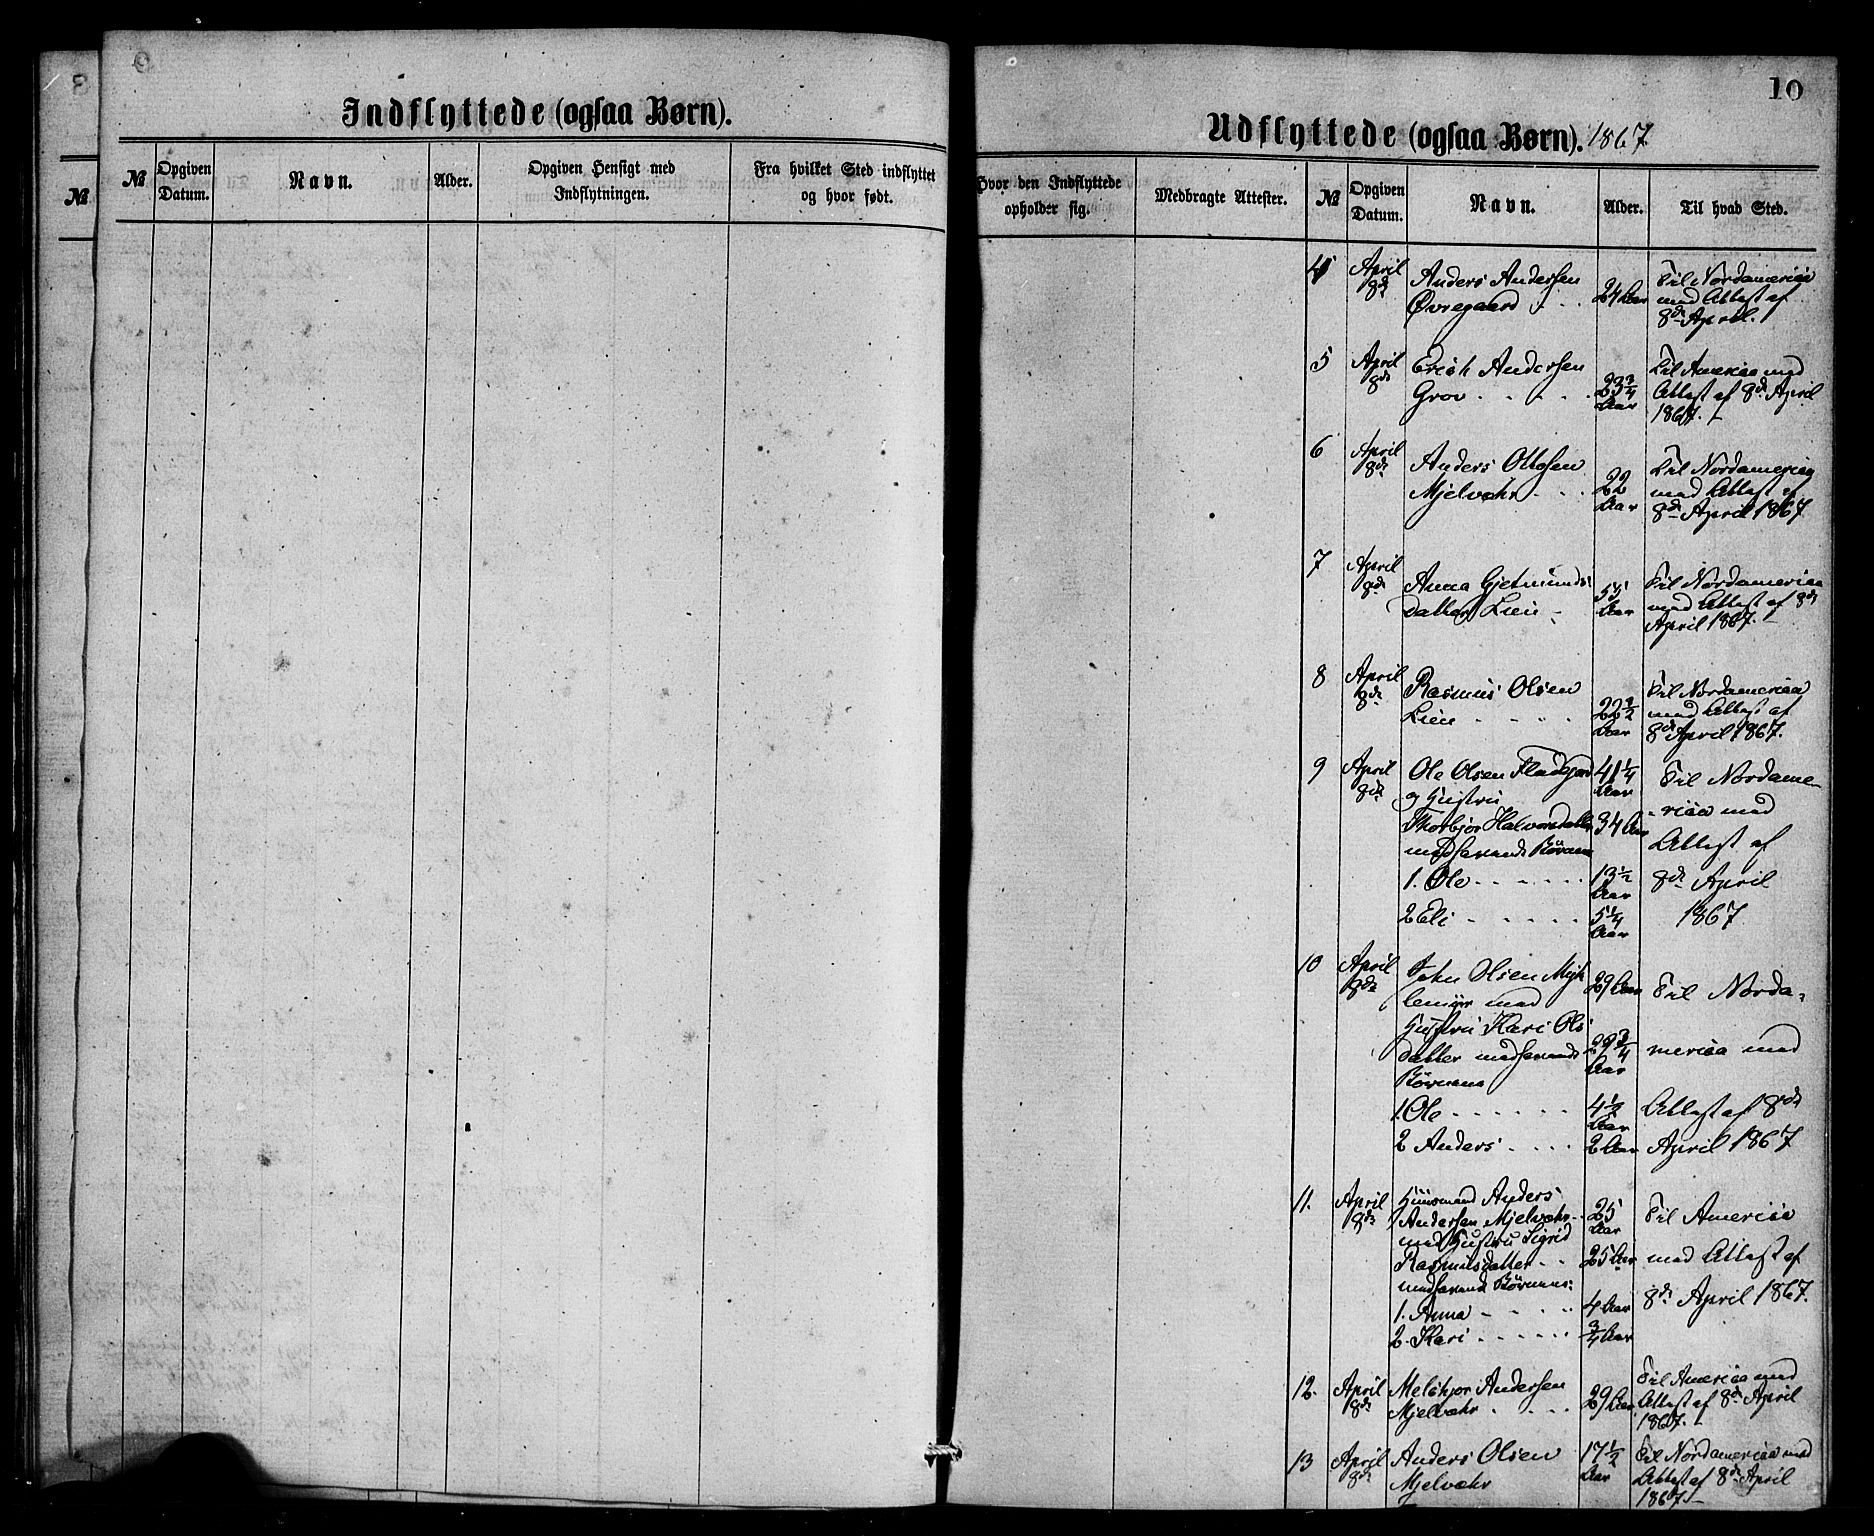 9
8
10
Indflyttede (ogsaa Børn).
Udflyttede (ogsaa Børn). 1867
№
№ Opgiven Datum. Navn. Alder. Opgiven Hensigt med Indflytningen. Fra hvilket Sted indflyttet og hvor født.
Hvor den Indflyttede opholder sig. Medbragte Attester. № Opgiven Datum. Navn. Alder. Til hvad Sted.
4 April 8de Anders Andersen Øvregaard 24 Aar Til Nordamerica med Attest af 8de April.
5 April 8de Erich Andersen Grov 23 3/4 Aar Til America med Attest af 8de April 1867.
6 April 8de Anders Ottosen Mjelvæhr 22 Aar Til Nordamerica med Attest af 8de April 1867
7 April 8de Anna Gjetmunds datter Lien 55 Aar Til Nordamerica med Attest af 8de April 1867.
8 April 8de Rasmus Olsen Lien 22 Aar Til Nordamerica med Attest af 8de April 1867.
9 April 8de Ole Olsen 41 1/4 Aar Til Nordame-
og Hustru
Thorbjør Halvorsdatter 34 Aar -rica med
medhavende Børnene Attest af
1. Ole 13 1/2 Aar 8de April
2 Eli 5 1/4 Aar 1867
10 April 8de John Olsen Myk 29 Aar Til Norda-
lemyr med
Hustru Kari Ols
datter medhavende 29 3/4 Aar merica med
Børnene
1. Ole 4 1/2 Aar Attest af 8de
2 Anders 2 Aar April 1867
11. April 8de Huusmand Anders
Andersen Mjelvæhr 25 Aar Til America
med Hustru Sigrid
Rasmusdatter 25 Aar med Attest af
medhavende Børnene:
1. Anna 4 Aar 8de April 1867.
2. Kari 3/4 Aar
12. April 8de Melchjor Andersen Mjelvæhr 29 Aar Til America med Attest af 8de April 1867.
13 April 8de Anders Olsen Mjelvæhr 17 1/2 Aar Til Nordamerica med Attest af 8de April 1867.